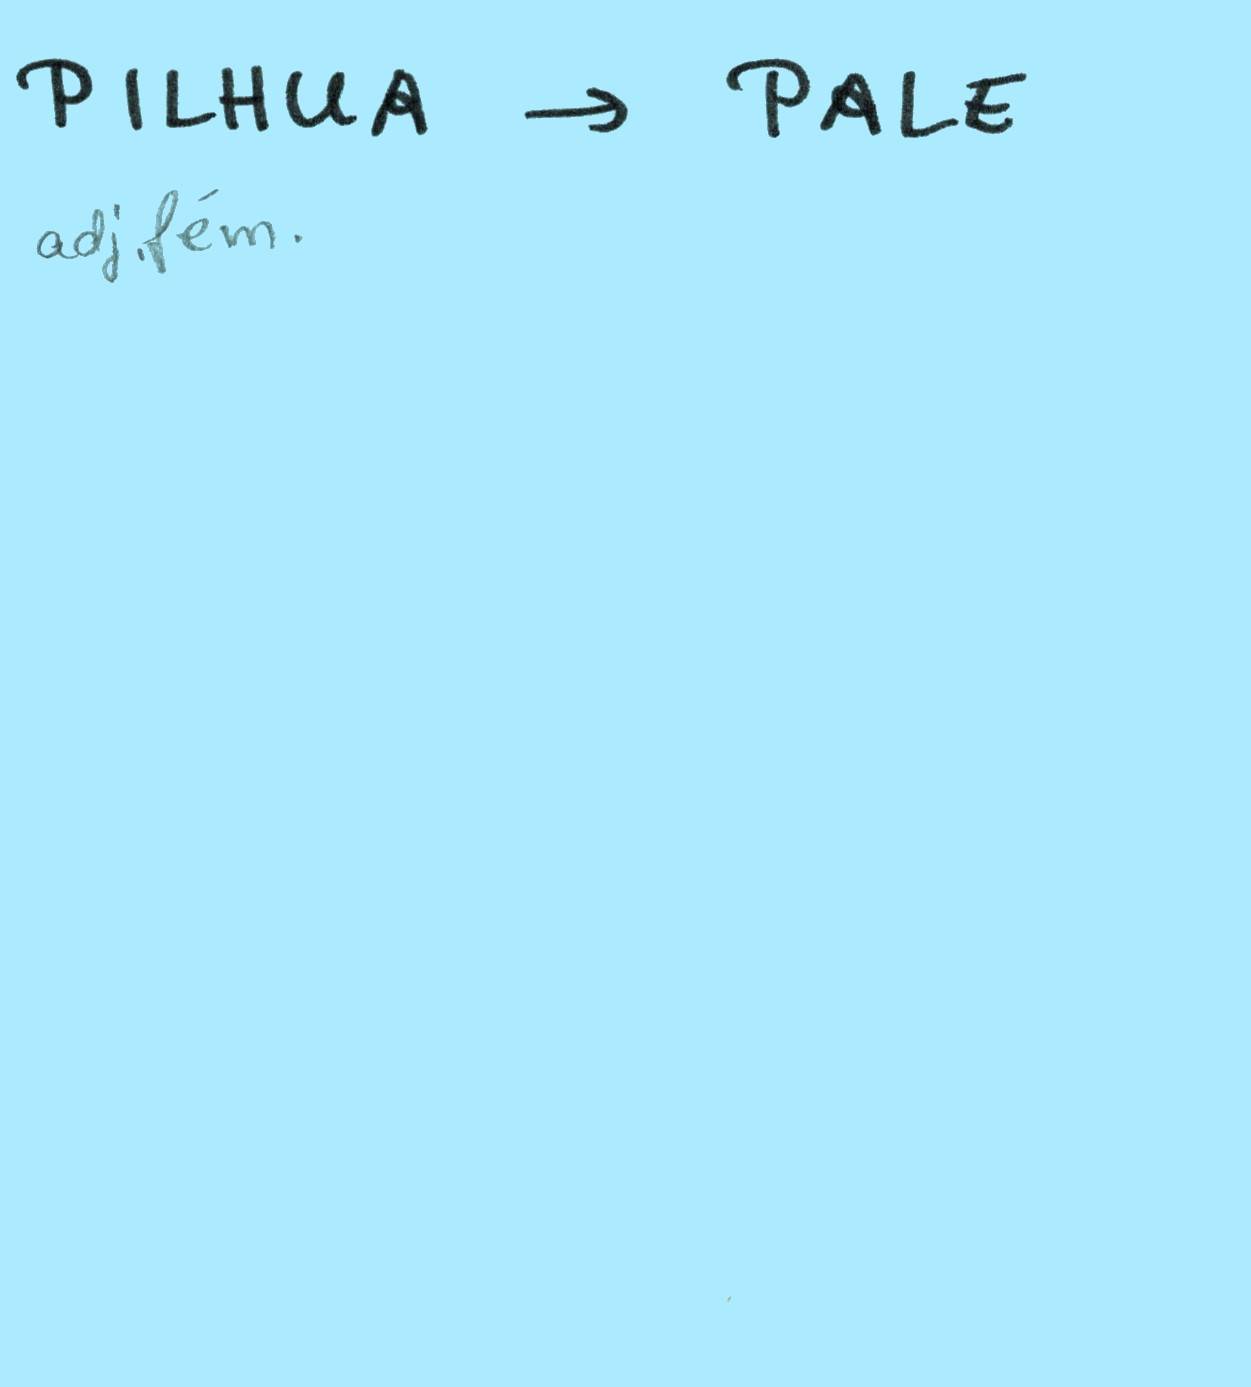 PILHUA → PALE
adj. fém.